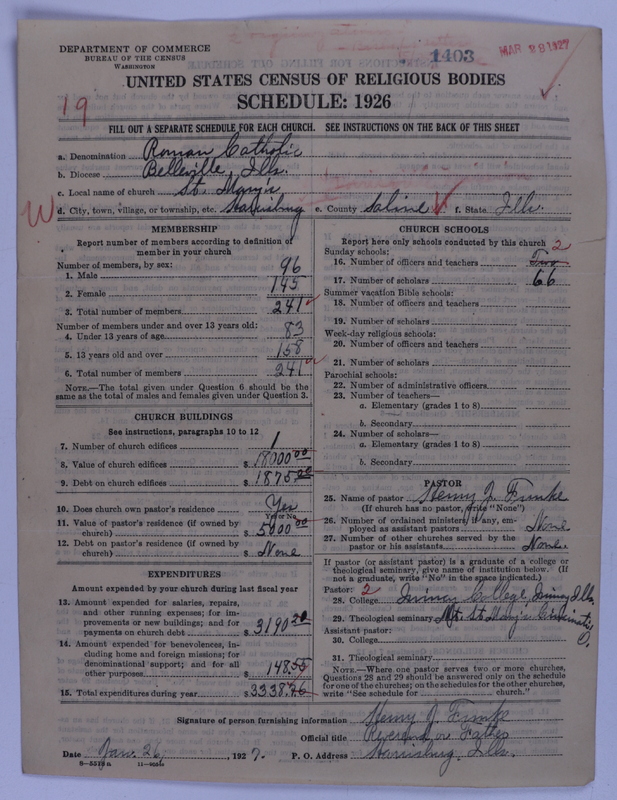 1403
MAR 28 1927
DEPARTMENT OF COMMERCE
BUREAU OF THE CENSUS
WASHINGTON
UNITED STATES CENSUS OF RELIGIOUS BODIES
SCHEDULE: 1926
19
FILL OUT A SEPARATE SCHEDULE FOR EACH CHURCH. SEE INSTRUCTIONS ON THE BACK OF THIS SHEET
a. Denomination Roman Catholic
b. Diocese Belleville, Ills.
c. Local name of church St. Mary's
W
d. City, town, village, or township, etc. Harrisburg e. County Saline f. State Ills.
MEMBERSHIP
Report number of members according to definition of member in your church
Number of members, by sex:
1. Male 96
2. Female 145
3. Total number of members 241
Number of members under and over 13 years old:
4. Under 13 years of age 83
5. 13 years old and over 158
6. Total number of members 241
NOTE.—The total given under Question 6 should be the same as the total of males and females given under Question 3.
CHURCH BUILDINGS
See instructions, paragraphs 10 to 12
7. Number of church edifices 1
8. Value of church edifices $ 18000 00
9. Debt on church edifices $ 1875 00
10. Does church own pastor's residence Yes
Yes or No
11. Value of pastor's residence (if owned by church) $ 5000 00
12. Debt on pastor's residence (if owned by church) $ None
EXPENDITURES
Amount expended by church during last fiscal year
13. Amount expended for salaries, repairs, and other running expenses; for improvements or new buildings; and for payments on church debt $ 3190 20
14. Amount expended for benevolences, including home and foreign missions; for denominational support; and for all other purposes $ 148.55
15. Total expenditures during year $ 3338.76
CHURCH SCHOOLS
Report here only schools conducted by this church
Sunday schools: 2
16. Number of officers and teachers Two
17. Number of scholars 66
Summer vacation Bible schools:
18. Number of officers and teachers
19. Number of scholars
Week-day religious schools:
20. Number of officers and teachers
21. Number of scholars
Parochial schools:
22. Number of administrative officers
23. Number of teachers—
a. Elementary (grades 1 to 8)
b. Secondary
24. Number of scholars—
a. Elementary (grades 1 to 8)
b. Secondary
PASTOR
25. Name of pastor Henry J. Funke
(If church has no pastor, write "None")
26. Number of ordained ministers, if any, employed as assistant pastors None
27. Number of other churches served by the pastor or his assistants None.
If pastor (or assistant pastor) is a graduate of a college or theological seminary, give name of institution below. (If not a graduate, write "No" in the space indicated.)
Pastor: 2
28. College Quincy College, Quincy Ills.
29. Theological seminary Mt. St. Mary's Cincinnati, O.
Assistant pastor:
30. College
31. Theological seminary
NOTE.—Where one pastor serves two or more churches, Questions 28 and 29 should be answered only on the schedule for one of the churches; on the schedules for the other churches, write "See schedule for church."
Signature of person furnishing information Henry J. Funke
Official title Reverend or Father
Date Jan. 26, 1927. P. O. Address Harrisburg, Ills.
8-5515a 11-4054